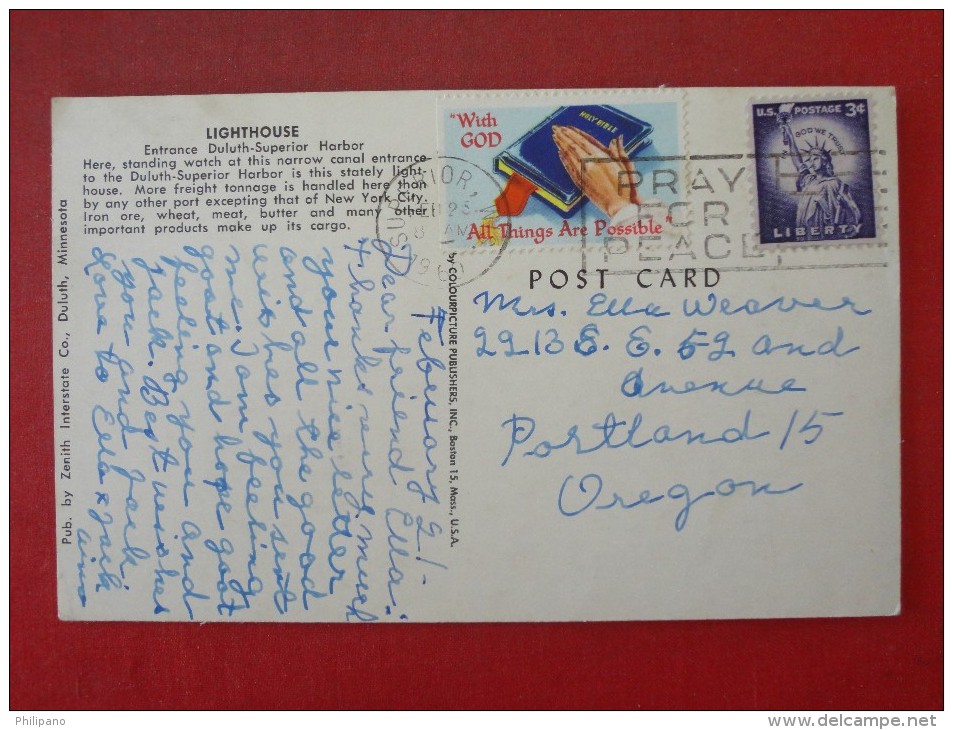 LIGHTHOUSE
Entrance Duluth-Superior Harbor
Here, standing watch at this narrow canal entrance
to the Duluth-Superior Harbor is this stately light-
house. More freight tonnage is handled here than
by any other port excepting that of New York City.
Iron ore, wheat, meat, butter and many other
important products make up its cargo.
Pub. by Zenith Interstate Co., Duluth, Minnesota
by COLOURPICTURE PUBLISHERS, INC., Boston 15, Mass., U.S.A.
"With
GOD
HOLY BIBLE
All Things Are Possible"
SUPERIOR,
FEB 23
8 AM
PRAY
FOR
PEACE
U.S. POSTAGE 3¢
IN GOD WE TRUST
LIBERTY
POST CARD
Mrs. Ella Weaver
2213 S. E. 52 and
Avenue
Portland 15
Oregon
February 21-
Dear friend Ella:
Thanks very much
your nice letter
and all the good
wishes you sent
me. I am feeling
goot and hope goot
feeling you and
Jack. Best wishes
you and Jack
Love to Ella & Jack
Aino
Philipano
www.delcampe.net